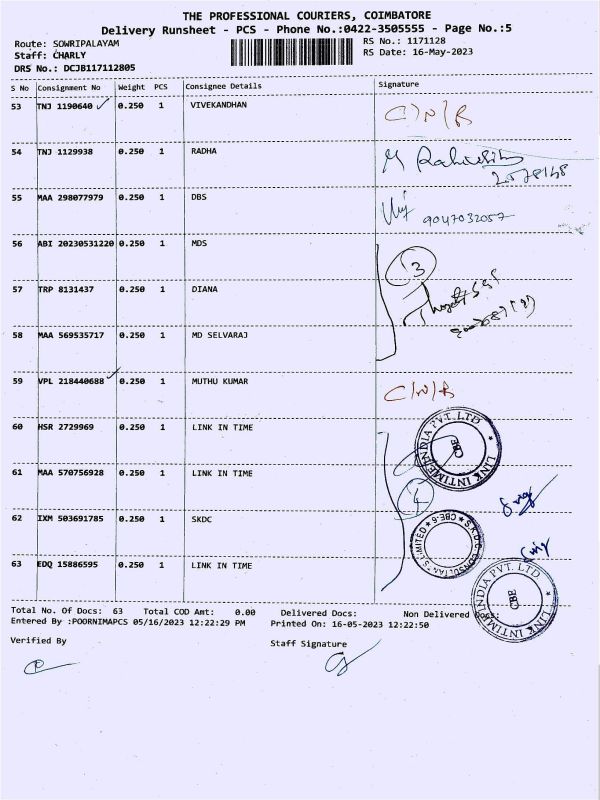 THE PROFESSIONAL COURIERS, COIMBATORE
Delivery Runsheet - PCS - Phone No.:0422-3505555 - Page No.:5
Route: SOWRIPALAYAM RS No.: 1171128
Staff: CHARLY RS Date: 16-May-2023
DRS No.: DCJB117112805
S No Consignment No Weight PCS Consignee Details Signature
53 TNJ 1190640 ✓ 0.250 1 VIVEKANDHAN C/N/B
54 TNJ 1129938 0.250 1 RADHA M
55 MAA 298077979 0.250 1 DBS 9047032057
56 ABI 20230531220 0.250 1 MDS
3
57 TRP 8131437 0.250 1 DIANA
58 MAA 569535717 0.250 1 MD SELVARAJ
59 VPL 218440688 ✓ 0.250 1 MUTHU KUMAR C/N/B
60 HSR 2729969 0.250 1 LINK IN TIME
LINK INTIME INDIA PVT. LTD
CBE
61 MAA 570756928 0.250 1 LINK IN TIME
4
62 IXM 503691785 0.250 1 SKDC
SKDC CONSULTANTS LIMITED
CBE-6
63 EDQ 15886595 0.250 1 LINK IN TIME
LINK INTIME INDIA PVT. LTD
CBE
Total No. Of Docs: 63 Total COD Amt: 0.00 Delivered Docs: Non Delivered Docs:
Entered By :POORNIMAPCS 05/16/2023 12:22:29 PM Printed On: 16-05-2023 12:22:50
Verified By Staff Signature